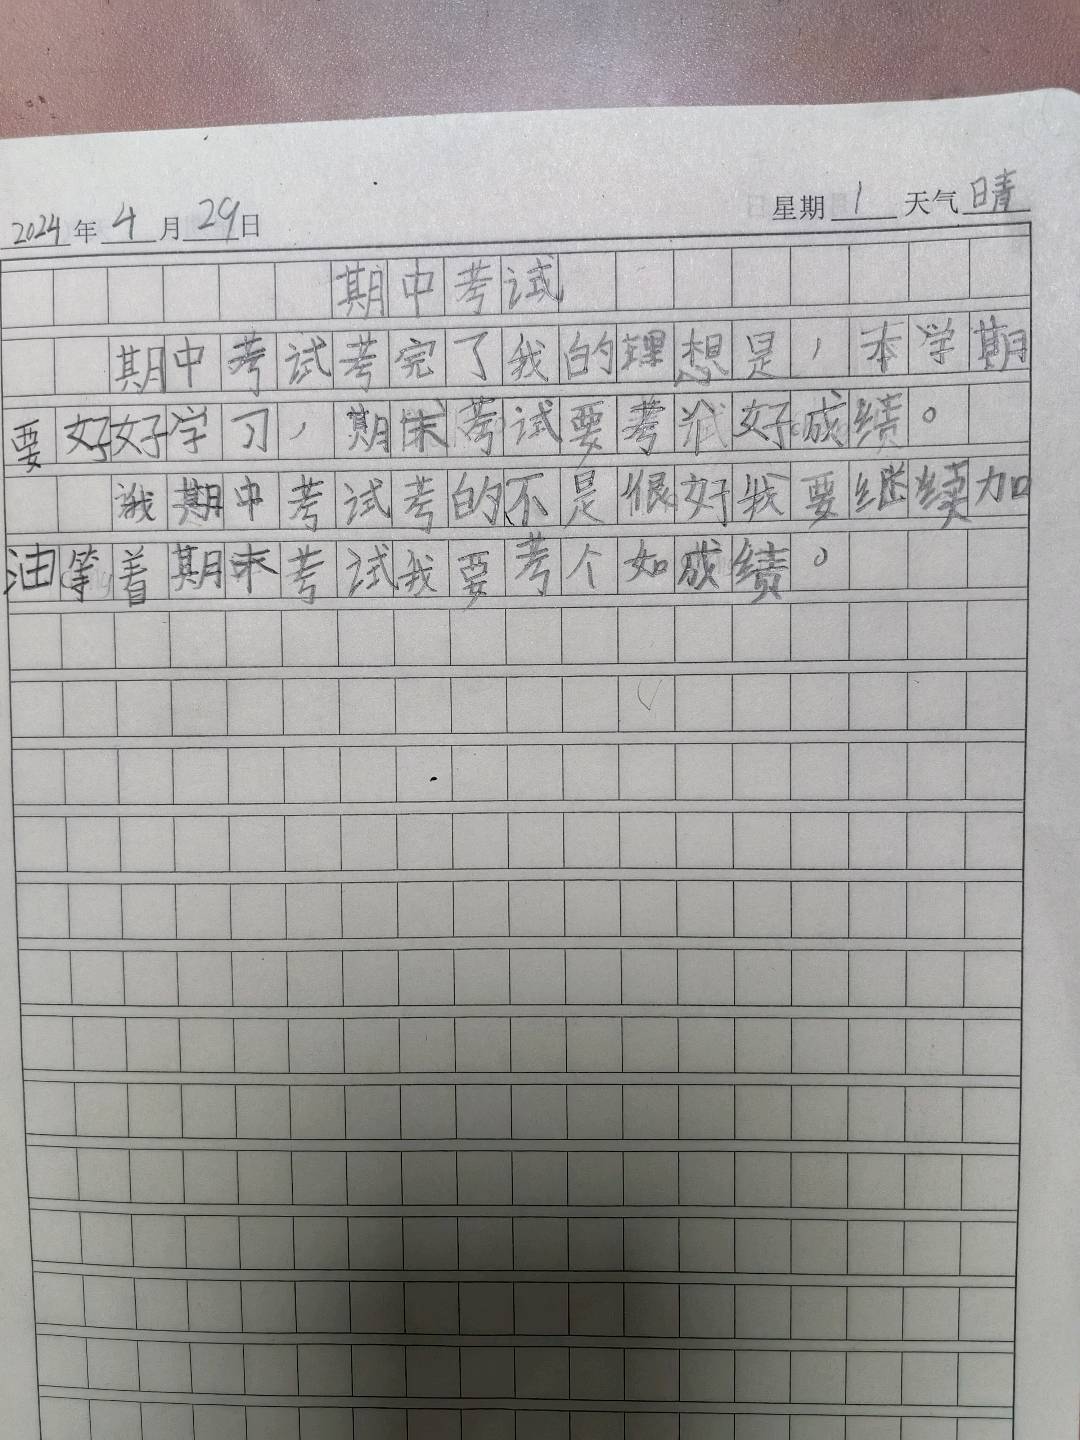 2024年4月29日 星期1 天气晴
期中考试
期中考试考完了我的理想是，本学期
要好好学习，期末考试要考个好成绩。
我期中考试考的不是很好我要继续加
油等着期末考试我要考个如成绩。